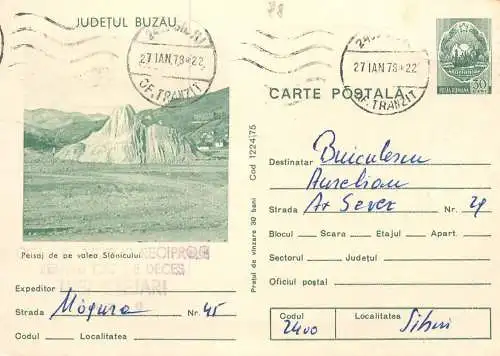 JUDEȚUL BUZĂU
78
27 IAN 78*22
OF. TRANZIT
27 IAN 78*22
OF. TRANZIT
CARTE POȘTALĂ
POSTA ROMANA 30
Peisaj de pe valea Slănicului
RECIPROC
DECES
Expeditor
Strada Măgura Nr. 45
Codul Localitatea
Cod 1224/75
Prețul de vînzare 30 bani
Destinatar Buiculescu
Aurelian
Strada Ar Sever Nr. 29
Blocul Scara Etajul Apart.
Sectorul Județul
Oficiul poștal
Codul 2400
Localitatea Sibiu